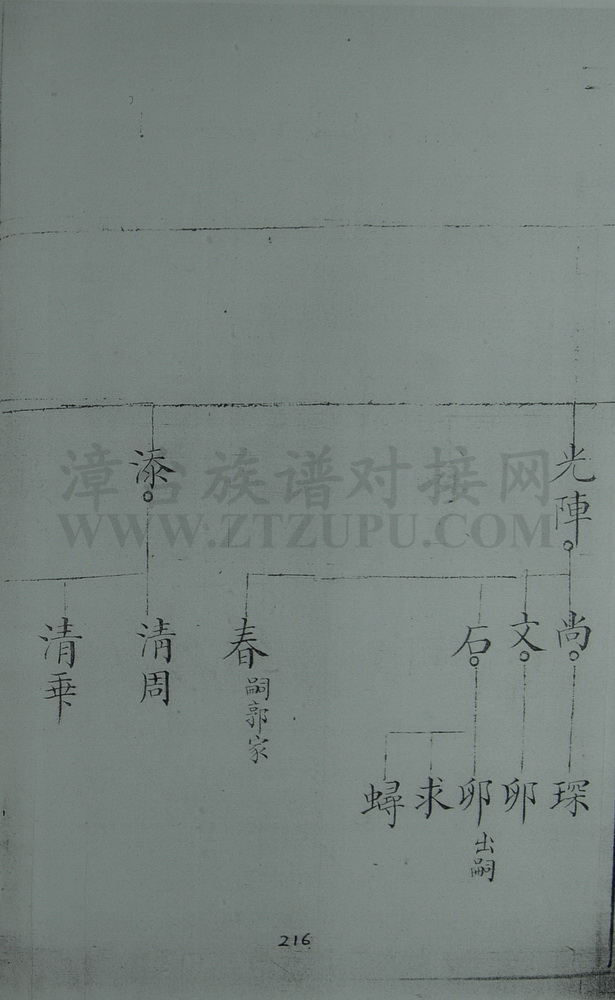 光陣
添
尚
文
石
春 嗣郭家
清周
清乖
琛
卯
卯 出嗣
求
蟳
漳台族谱对接网
WWW.ZTZUPU.COM
216